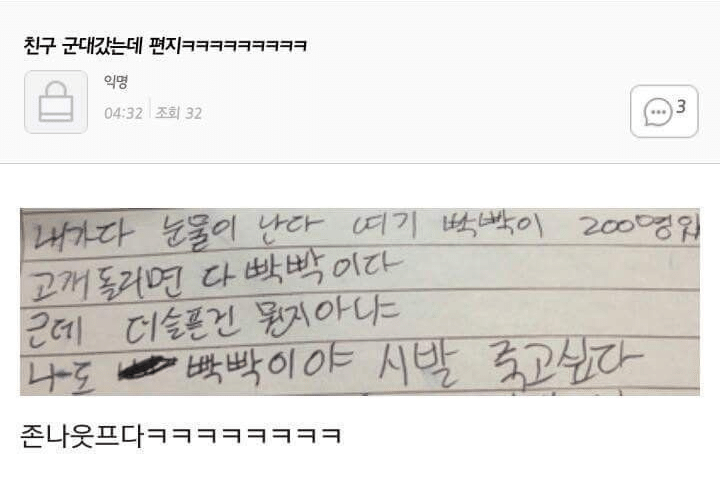 친구 군대갔는데 편지ㅋㅋㅋㅋㅋㅋㅋㅋㅋ
익명
04:32 조회 32
3
내가다 눈물이 난다 여기 빡빡이 200명있
고개돌리면 다 빡빡이다
근데 더슬픈건 뭔지아냐
나도 빡빡이야 시발 죽고싶다
존나웃프다ㅋㅋㅋㅋㅋㅋㅋㅋ